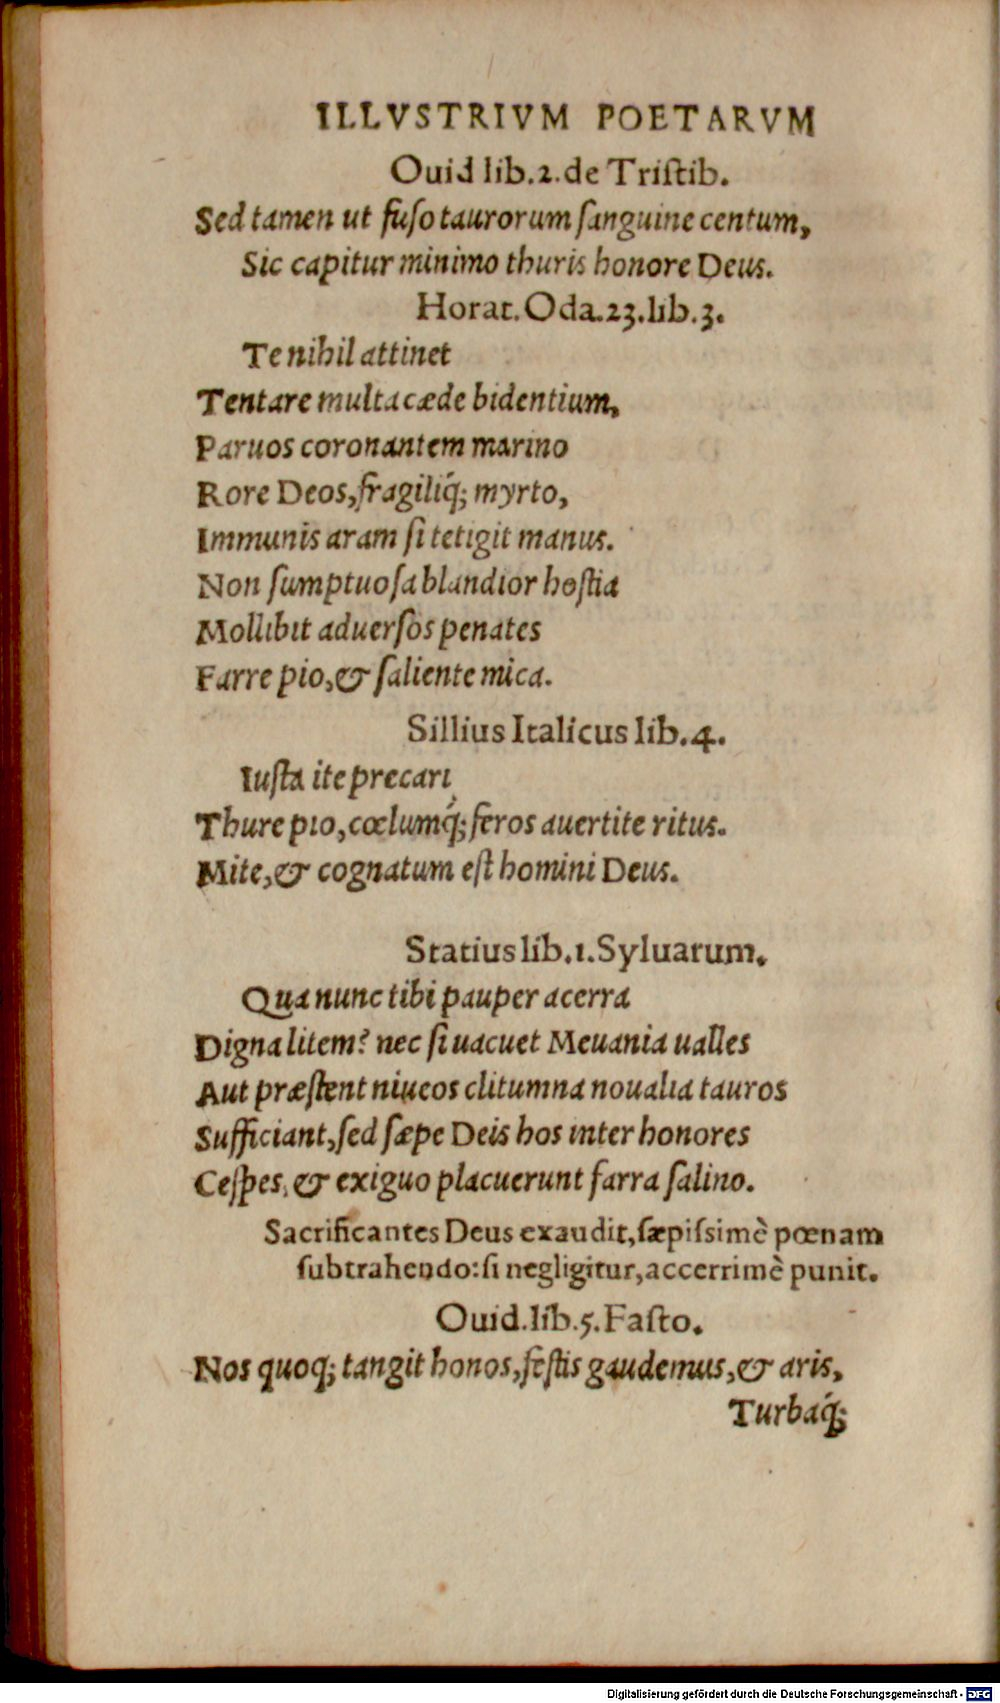 ILLVSTRIVM POETARVM
Ouid lib.2.de Triſtib.
Sed tamen ut fuſo taurorum ſanguine centum,
Sic capitur minimo thuris honore Deus.
Horat.Oda.23.lib.3.
Te nihil attinet
Tentare multa cæde bidentium,
Paruos coronantem marino
Rore Deos,fragiliq́; myrto,
Immunis aram ſi tetigit manus.
Non ſumptuoſa blandior hoſtia
Mollibit aduerſos penates
Farre pio,& ſaliente mica.
Sillius Italicus lib.4.
Iuſta ite precari
Thure pio,cœlumq́;feros auertite ritus.
Mite,& cognatum eſt homini Deus.
Statius lib.1.Syluarum.
Qua nunc tibi pauper acerra
Digna litem? nec ſi uacuet Meuania ualles
Aut præſtent niueos clitumna noualia tauros
Sufficiant,ſed ſæpe Deis hos inter honores
Ceſpes,& exiguo placuerunt farra ſalino.
Sacrificantes Deus exaudit,ſæpiſsimè pœnam
ſubtrahendo:ſi negligitur,accerrimè punit.
Ouid.lib.5.Faſto.
Nos quoq; tangit honos,feſtis gaudemus,& aris,
Turbaq́;
Digitalisierung gefördert durch die Deutsche Forschungsgemeinschaft - DFG